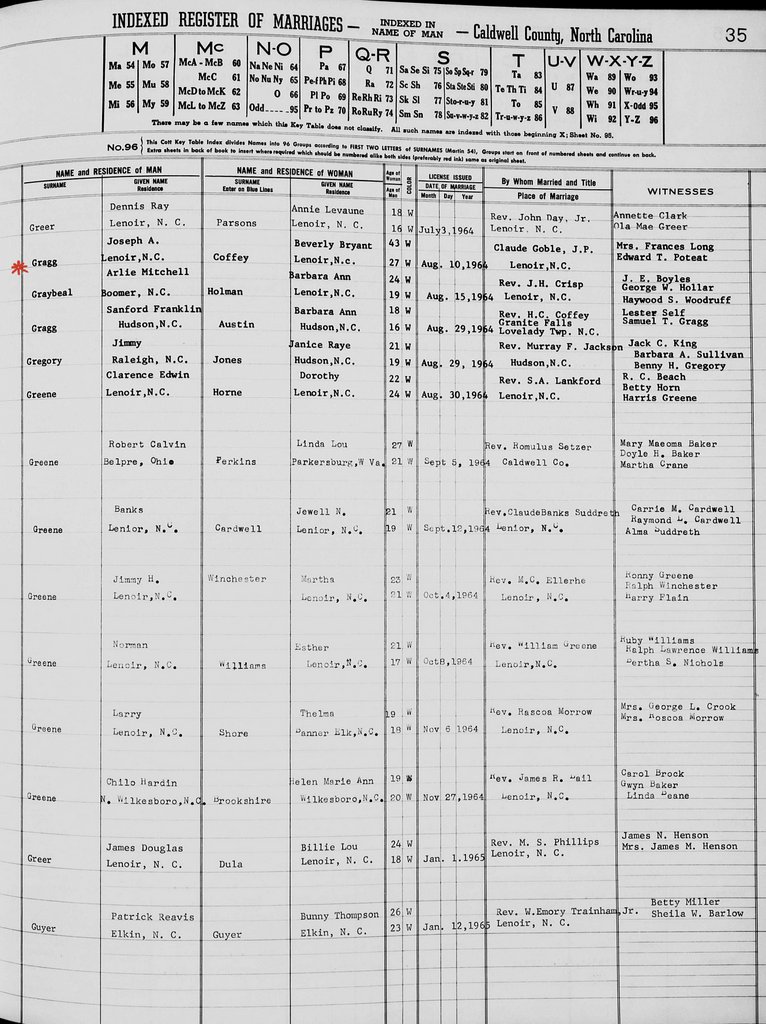 INDEXED REGISTER OF MARRIAGES — INDEXED IN NAME OF MAN — Caldwell County, North Carolina 35
M Mc N-O P Q-R S T U-V W-X-Y-Z
Ma 54 Mo 57 McA - McB 60 Na Ne Ni 64 Pa 67 Q 71 Sa Se Si 75 So Sp Sq-r 79 Ta 83 Wa 89 Wo 93
Me 55 Mu 58 McC 61 No Nu Ny 65 Pe-f Ph Pi 68 Ra 72 Sc Sh 76 Sta Ste Sti 80 Te Th Ti 84 U 87 We 90 Wr-u-y 94
McD to McK 62 O 66 Pl Po 69 Re Rh Ri 73 Sk Sl 77 Sto-r-u-y 81 To 85 Wh 91 X-Odd 95
Mi 56 My 59 McL to McZ 63 Odd 95 Pr to Pz 70 Ro Ru Ry 74 Sm Sn 78 Su-v-w-y-z 82 Tr-u-w-y-z 86 V 88 Wi 92 Y-Z 96
There may be a few names which this Key Table does not classify. All such names are indexed with those beginning X; Sheet No. 95.
No.96 This Cott Key Table Index divides Names into 96 Groups according to FIRST TWO LETTERS of SURNAMES (Martin 54). Groups start on front of numbered sheets and continue on back.
Extra sheets in back of book to insert where required which should be numbered alike both sides (preferably red ink) same as original sheet.
NAME and RESIDENCE OF MAN NAME and RESIDENCE OF WOMAN Age of Woman COLOR LICENSE ISSUED By Whom Married and Title WITNESSES
SURNAME GIVEN NAME Residence SURNAME Enter on Blue Lines GIVEN NAME Residence Age of Man DATE OF MARRIAGE Month Day Year Place of Marriage
Dennis Ray Annie Levaune 18 W Rev. John Day, Jr. Annette Clark
Greer Lenoir, N. C. Parsons Lenoir, N. C. 16 W July3,1964 Lenoir, N. C. Ola Mae Greer
Joseph A. Beverly Bryant 43 W Claude Goble, J.P. Mrs. Frances Long
Gragg Lenoir,N.C. Coffey Lenoir,N.c. 27 W Aug. 10,1964 Lenoir,N.C. Edward T. Poteat
Arlie Mitchell Barbara Ann 24 W Rev. J.H. Crisp J. E. Boyles
George W. Hollar
Graybeal Boomer, N.C. Holman Lenoir,N.C. 19 W Aug. 15,1964 Lenoir, N.C. Haywood S. Woodruff
Sanford Franklin Barbara Ann 18 W Rev. H.C. Coffey Lester Self
Gragg Hudson,N.C. Austin Hudson,N.C. 16 W Aug. 29,1964 Granite Falls Lovelady Twp. N.C. Samuel T. Gragg
Jimmy Janice Raye 21 W Rev. Murray F. Jackson Jack C. King
Barbara A. Sullivan
Gregory Raleigh, N.C. Jones Hudson,N.C. 19 W Aug. 29, 1964 Hudson,N.C. Benny H. Gregory
Clarence Edwin Dorothy 22 W Rev. S.A. Lankford R. C. Beach
Betty Horn
Greene Lenoir,N.C. Horne Lenoir,N.C. 24 W Aug. 30,1964 Lenoir,N.C. Harris Greene
Robert Calvin Linda Lou 27 W Rev. Romulus Setzer Mary Maeoma Baker
Doyle H. Baker
Greene Belpre, Ohio Perkins Parkersburg,W Va. 21 W Sept 5, 1964 Caldwell Co. Martha Crane
Banks Jewell N. 21 W Rev.ClaudeBanks Suddreth Carrie M. Cardwell
Raymond L. Cardwell
Greene Lenior, N.C. Cardwell Lenior, N.C. 19 W Sept.12,1964 Lenior, N.C. Alma Suddreth
Jimmy H. Winchester Martha 23 W Rev. M.C. Ellerhe Ronny Greene
Ralph Winchester
Greene Lenoir,N.C. Lenoir, N.C. 21 W Oct.4,1964 Lenoir, N.C. Harry Flain
Norman Esther 21 W Rev. William Greene Ruby Williams
Ralph Lawrence Williams
Greene Lenoir, N.C. Williams Lenoir,N.C. 17 W Oct8,1964 Lenoir,N.C. Bertha S. Nichols
Larry Thelma 19 W Rev. Rascoa Morrow Mrs. George L. Crook
Mrs. Roscoa Morrow
Greene Lenoir, N.C. Shore Banner Elk,N.C. 18 W Nov 6 1964 Lenoir, N.C.
Chilo Hardin Helen Marie Ann 19 W Rev. James R. Hail Carol Brock
Gwyn Baker
Greene N. Wilkesboro,N.C. Brookshire Wilkesboro,N.C. 20 W Nov 27,1964 Lenoir, N.C. Linda Deane
James Douglas Billie Lou 24 W Rev. M. S. Phillips James N. Henson
Greer Lenoir, N. C. Dula Lenoir, N. C. 18 W Jan. 1.1965 Lenoir, N. C. Mrs. James M. Henson
Betty Miller
Patrick Reavis Bunny Thompson 26 W Rev. W.Emory Trainham,Jr. Sheila W. Barlow
Guyer Elkin, N. C. Guyer Elkin, N. C. 23 W Jan. 12,1965 Lenoir, N. C.